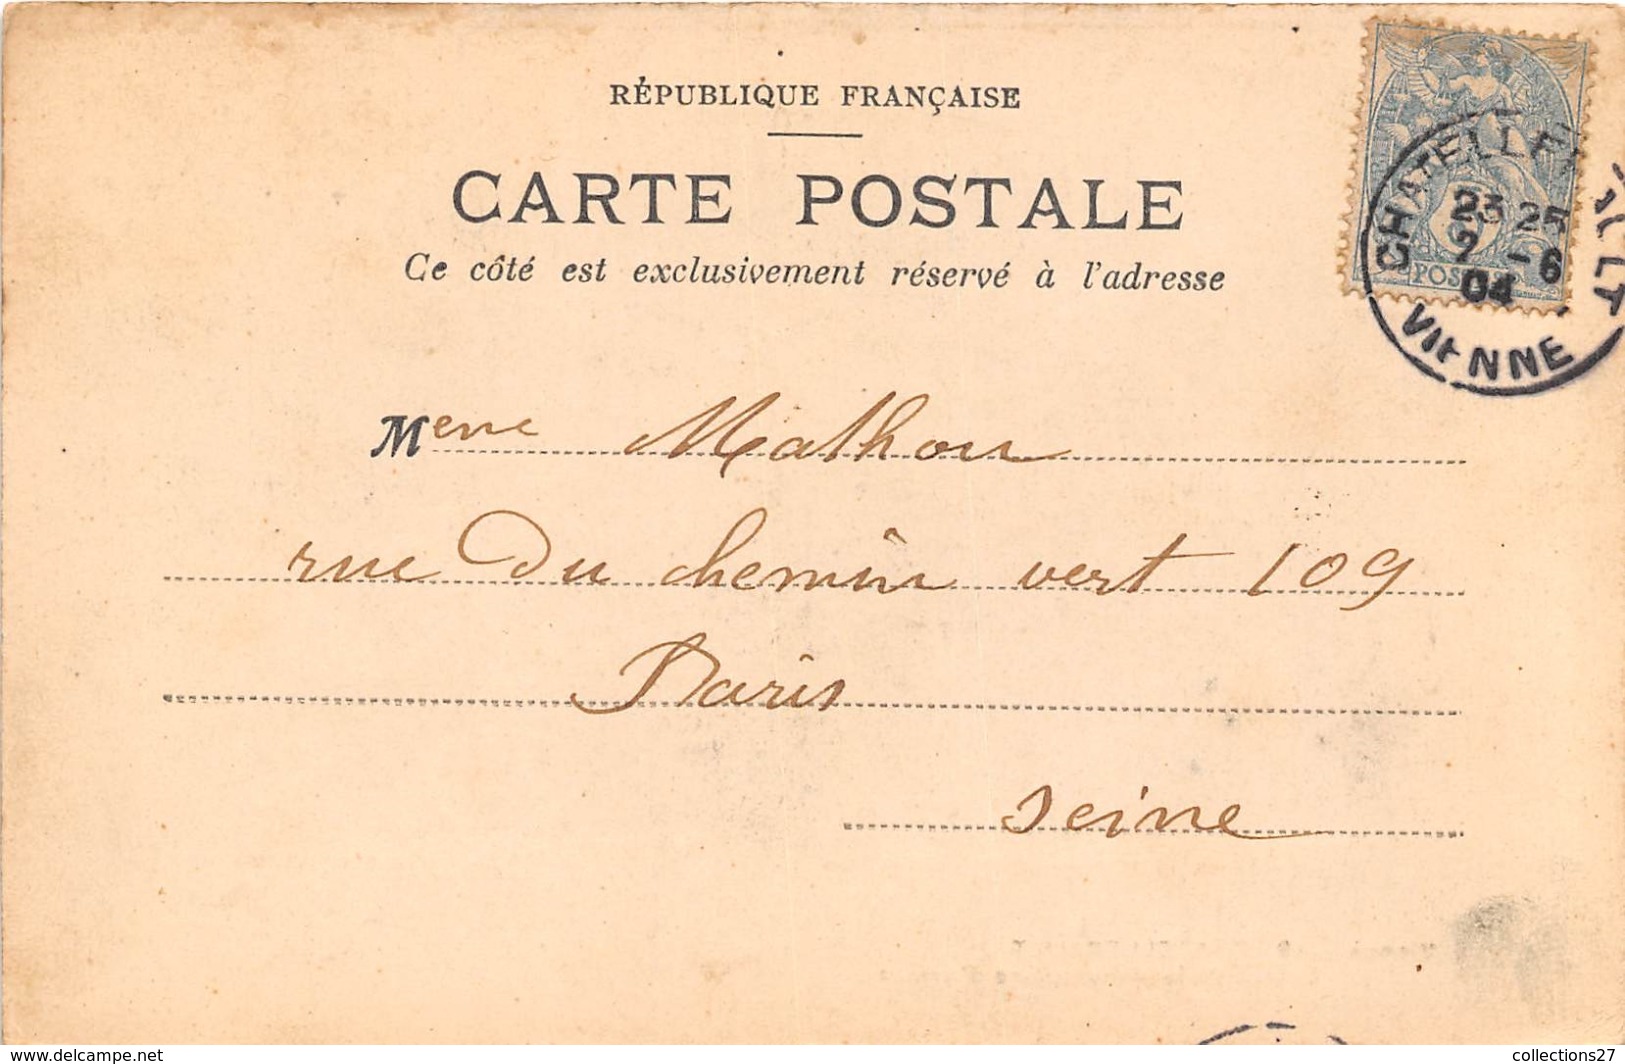 RÉPUBLIQUE FRANÇAISE
CARTE POSTALE
Ce côté est exclusivement réservé à l'adresse
CHATELLERAULT
23 25
2 -6
04
VIENNE
POSTES
Mme Mathon
rue Du chemin vert 109
Paris
Seine
www.delcampe.net
collections27